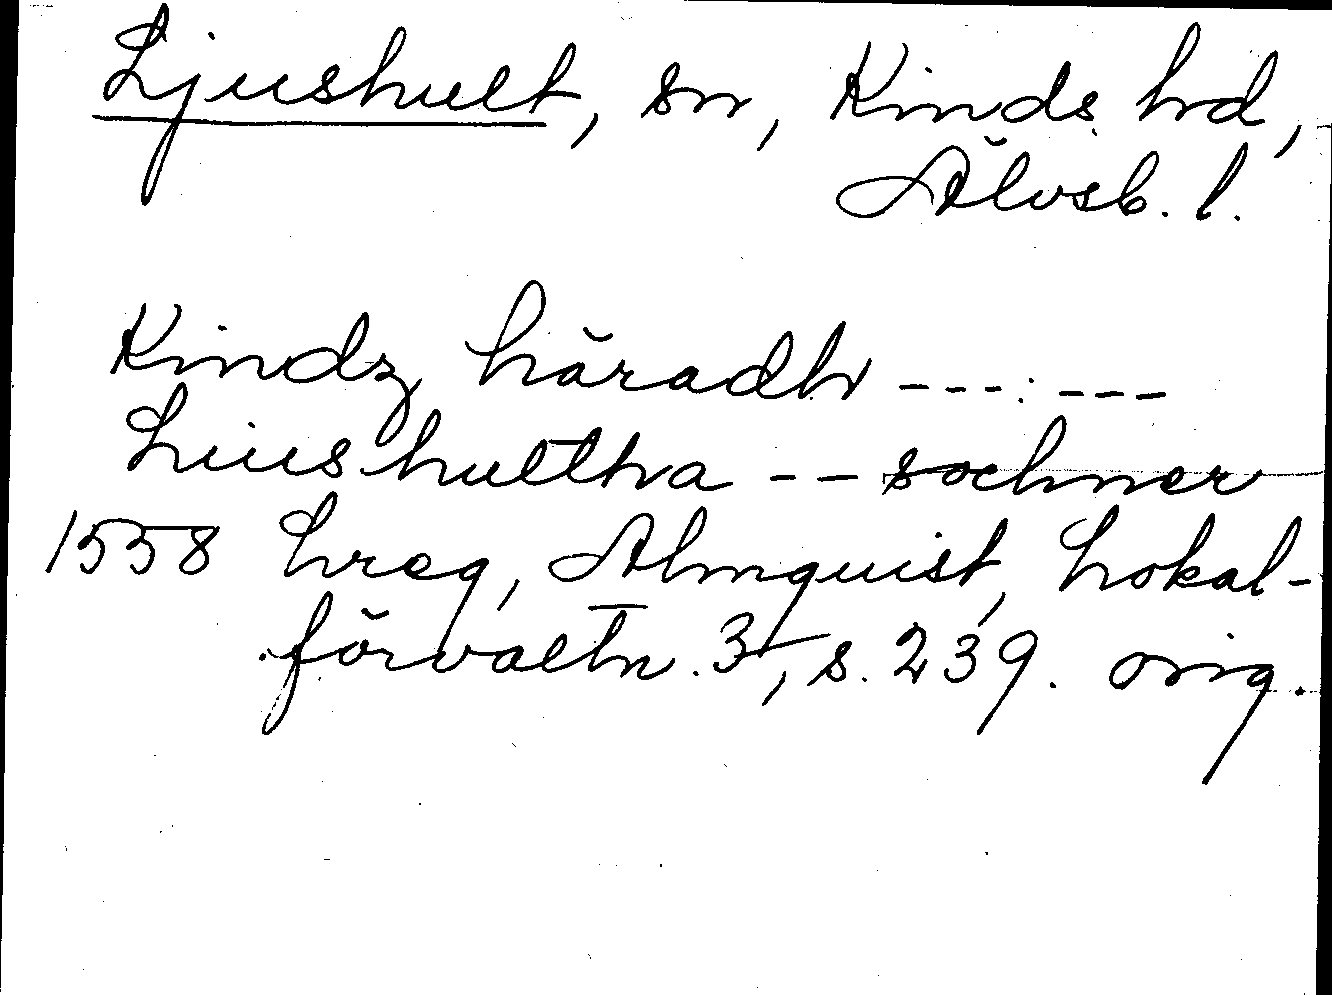 Ljushult, sn, Kinds hd,
Älvsb. l.
Kindz häradh ---:---
Liushulltha -- sochner
1558 hreg, Almquist, Lokal-
förvaltn. 3, s. 239. orig.